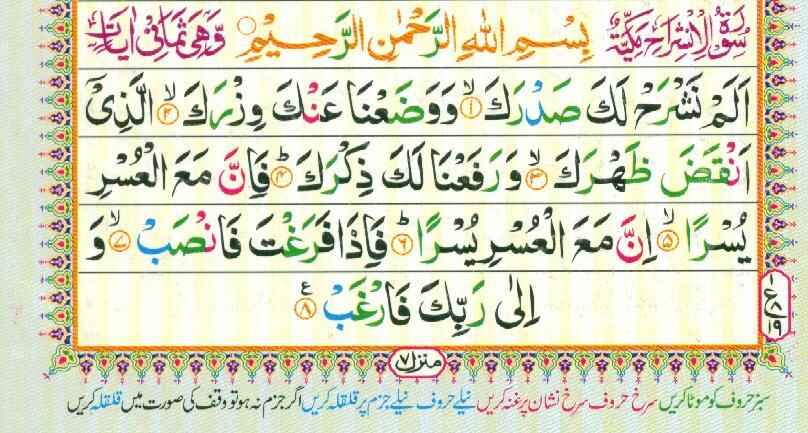 سُوْرَةُ الْاِنْشِرَاحِ مَكِّيَّةٌ بِسْمِ اللّٰهِ الرَّحْمٰنِ الرَّحِيْمِ وَّهِيَ ثَمَانِيْ اٰيَاتٍ
اَلَمْ نَشْرَحْ لَكَ صَدْرَكَ ۙ﴿۱﴾ وَوَضَعْنَا عَنْكَ وِزْرَكَ ۙ﴿۲﴾ الَّذِيْٓ
اَنْقَضَ ظَهْرَكَ ۙ﴿۳﴾ وَرَفَعْنَا لَكَ ذِكْرَكَ ؕ﴿۴﴾ فَاِنَّ مَعَ الْعُسْرِ
يُسْرًا ۙ﴿۵﴾ اِنَّ مَعَ الْعُسْرِ يُسْرًا ؕ﴿۶﴾ فَاِذَا فَرَغْتَ فَانْصَبْ ۙ﴿۷﴾ وَ
اِلٰى رَبِّكَ فَارْغَبْ ﴿۸﴾ ع
۱ ع ۸ ۱۹
منزل ۷
سبز حروف کو موٹا کریں سرخ حروف سرخ نشان پر غنہ کریں نیلے حروف نیلے جزم پر قلقلہ کریں اگر جزم نہ ہو تو وقف کی صورت میں قلقلہ کریں